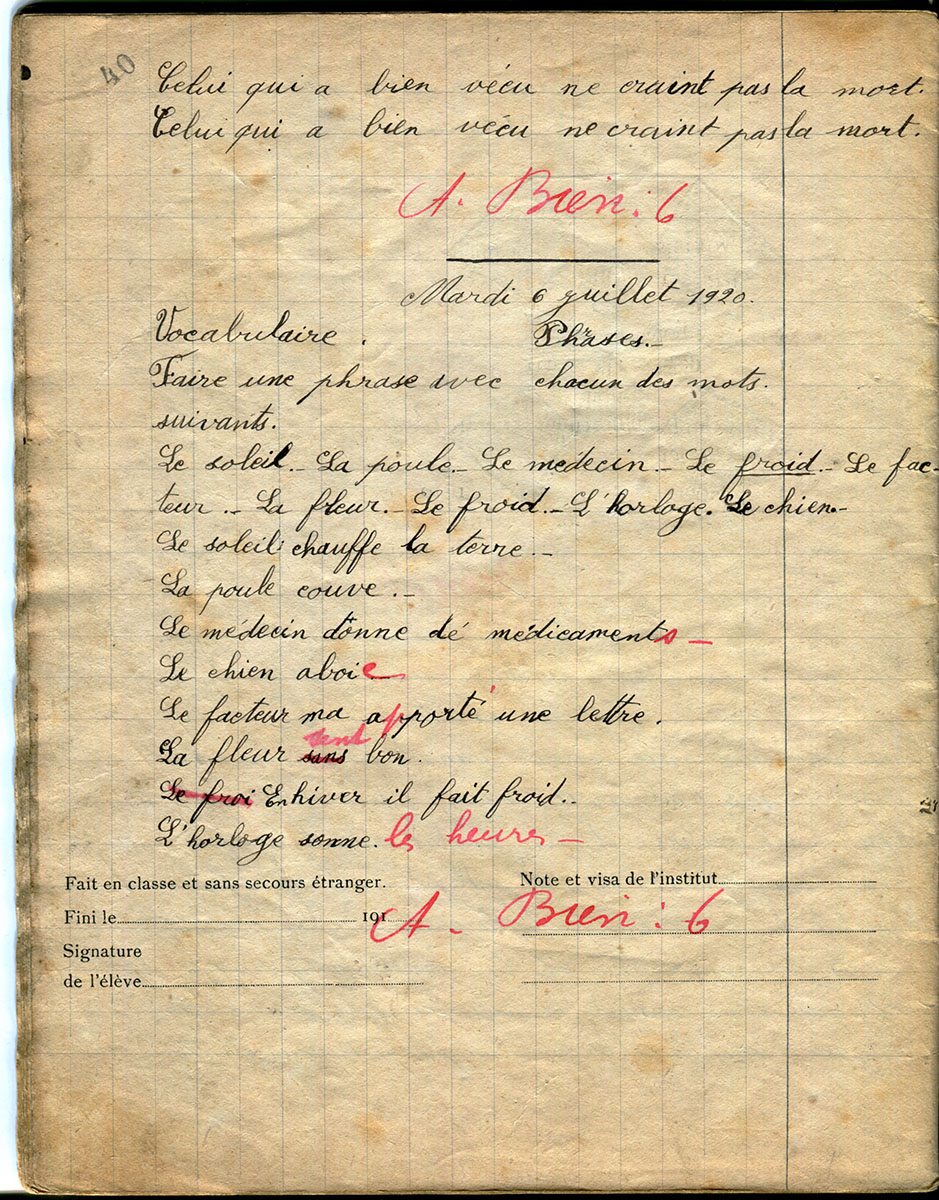 40
Celui qui a bien vécu ne craint pas la mort.
Celui qui a bien vécu ne craint pas la mort.
A. Bien : 6
Mardi 6 juillet 1920.
Vocabulaire. Phrases.–
Faire une phrase avec chacun des mots.
suivants.
Le soleil.– La poule.– Le medecin.– Le froid.– Le fac-
teur.– La fleur.– Le froid.– L'horloge. Le chien.–
Le soleil chauffe la terre.–
La poule couve.–
Le médecin donne dé médicaments –
Le chien aboie
Le facteur ma apporté une lettre.
sent
La fleur sans bon.
Le froi En hiver il fait froid..
L'horloge sonne. les heures –
Fait en classe et sans secours étranger.
Note et visa de l'institut
Fini le 191
A. Bien : 6
Signature
de l'élève